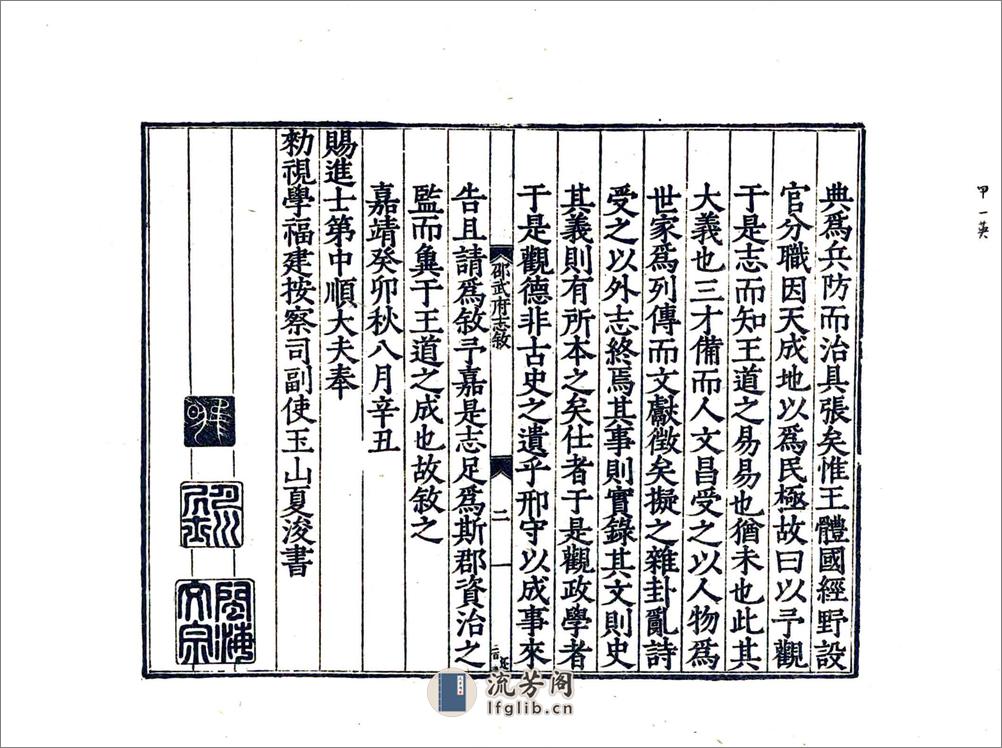 典爲兵防而治具張矣惟王體國經野設
官分職因天成地以爲民極故曰以予觀
于是志而知王道之易易也猶未也此其
大義也三才備而人文昌受之以人物爲
世家爲列傳而文獻徵矣擬之雜卦亂詩
受之以外志終焉其事則實錄其文則史
其義則有所本之矣仕者于是觀政學者
于是觀德非古史之遺乎邢守以成事來
邵武府志敘
二
一
告且請爲敘予嘉是志足爲斯郡資治之
監而兾于王道之成也故敘之
嘉靖癸卯秋八月辛丑
賜進士第中順大夫奉
勑視學福建按察司副使玉山夏浚書
閩海
文宗
甲一英
流芳阁
lfglib.cn